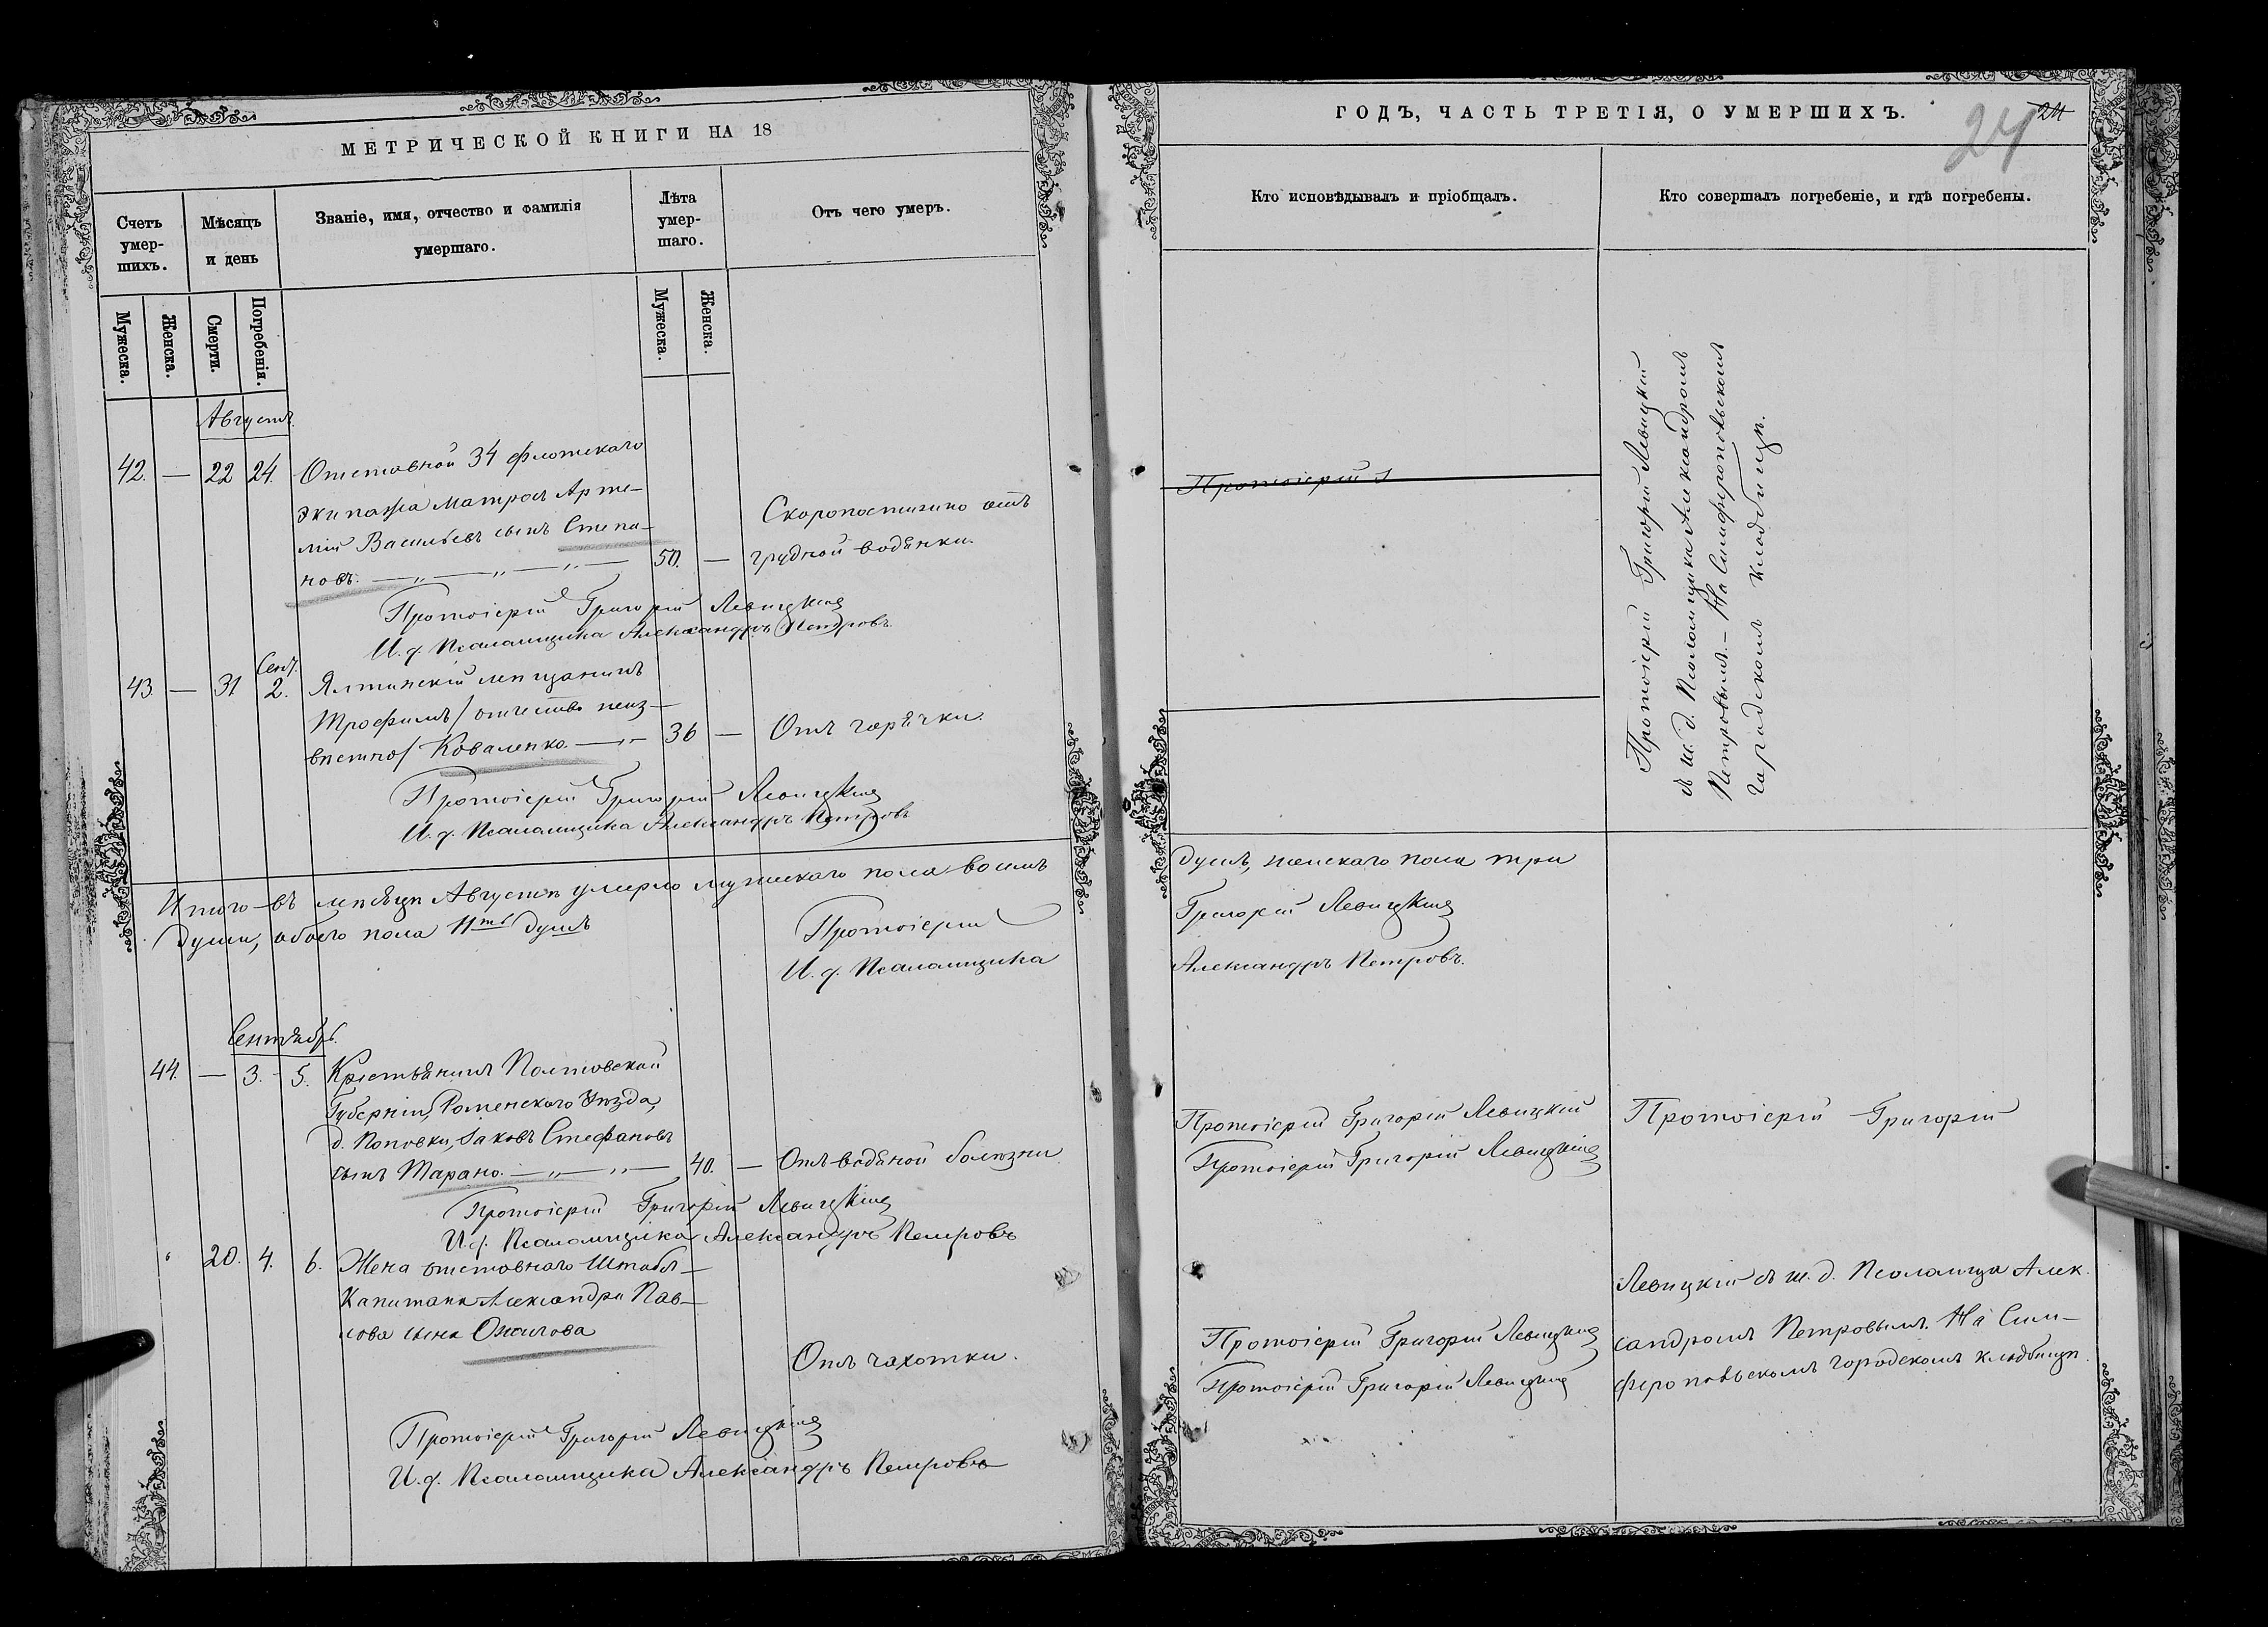 МЕТРИЧЕСКОЙ КНИГИ НА 18
Счетъ умершихъ.
Мѣсяцъ и день
Званіе, имя, отчество и фамилія умершаго.
Лѣта умершаго.
Отъ чего умеръ.
Мужеска.
Женска.
Смерти.
Погребенія.
Мужеска.
Женска.
Августъ.
42. — 22 24. Отставной 34 флотскаго
экипажа матросъ Арте-
мій Васильевъ сынъ Степа-
новъ. — „ — „ — „ — 50. —
Скоропостижно отъ
грудной водянки.
Протоіерей Григорій Левицкій
И. д. Псаломщика Александръ Петровъ.
43. — 31 Сент. 2. Ялтинскій мещанинъ
Трофимъ / отчество неиз-
вестно / Коваленко. — „ — 36 — Отъ горячки.
Протоіерей Григорій Левицкій
И. д. Псаломщика Александръ Петровъ
Итого въ месяце Августе умерло мужескаго пола восемь
души, обоего пола 11ть душъ
Протоіерей
И. д. Псаломщика
Сентябрь.
44. — 3. 5. Крестьянинъ Полтовской
Губерніи, Роменскаго Уезда,
д. Поповки, Іаковъ Стефановъ
сынъ Тарано. — „ — „ — 40. — Отъ водяной болезни
Протоіерей Григорій Левицкій
И. д. Псаломщика Александръ Петровъ
„ 20. 4. 6. Жена отставного Штабсъ-
Капитана Александра Пав-
лова сына
Отъ чахотки.
Протоіерей Григорій Левицкій
И. д. Псаломщика Александръ Петровъ
ГОДЪ, ЧАСТЬ ТРЕТІЯ, О УМЕРШИХЪ.
24
24
Кто исповѣдывалъ и пріобщалъ.
Кто совершалъ погребеніе, и гдѣ погребены.
Протоіерей
Протоіерей Григорій Левицкій
съ и. д. Псаломщика Александромъ
Петровымъ. — На Симферопольскомъ
городскомъ кладбище.
душъ, женскаго пола три
Григорій Левицкій
Александръ Петровъ.
Протоіерей Григорій Левицкій
Протоіерей Григорій Левицкій
Протоіерей Григорій
Протоіерей Григорій Левицкій
Протоіерей Григорій Левицкій
Левицкій съ и. д. Псаломщ. Алек.
сандромъ Петровымъ. На Сим-
феропольскомъ городскомъ кладбище.